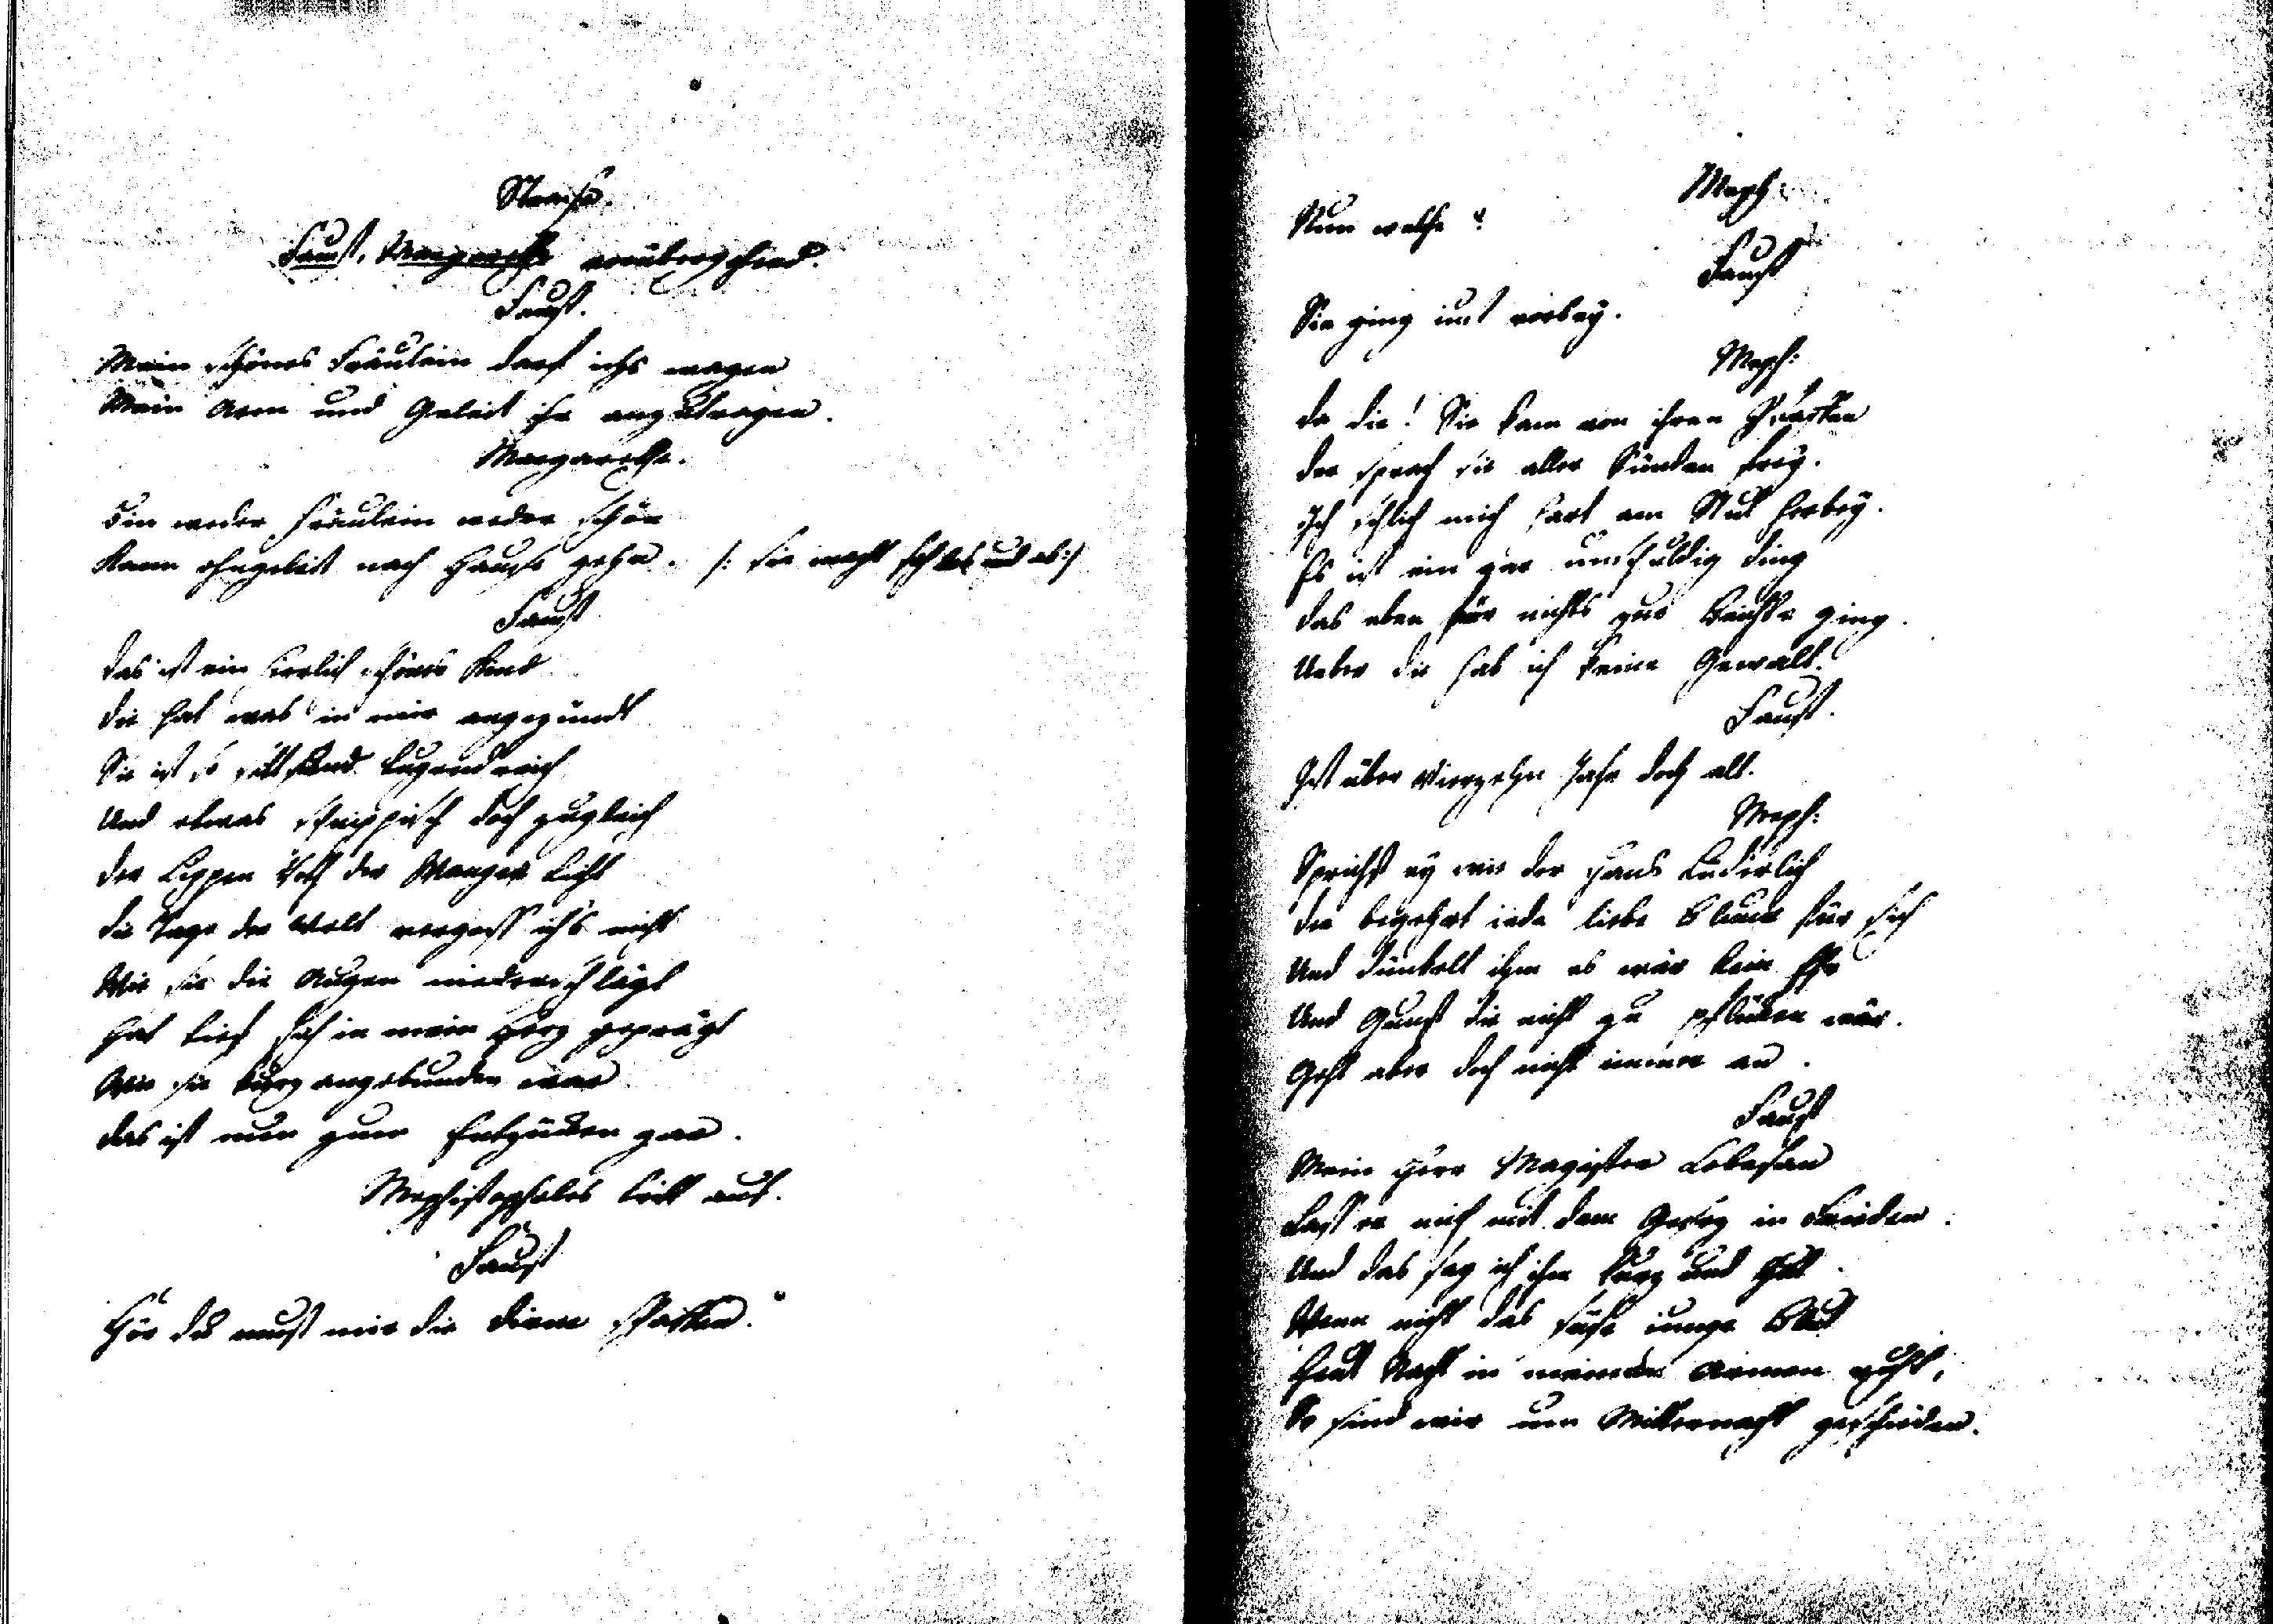 Strase.
Faust, Margarethe vorübergehend.
Faust.
Mein schönes Fräulein darf ichs wagen
Mein Arm und Geleit ihr anzutragen.
Margarethe.
Bin weder Fräulein weder schön
Kann ohngeleit nach Hause gehn. /: sie macht sich los und ab:/
Faust
Das ist ein herrlich schönes Kind
Die hat was in mir angezündt
Sie ist so sitt und tugendreich
Und etwas schnippisch doch zugleich
Der Lippen Roth der Wangen Licht
Die Tage der Welt vergess ich's nicht
Wie sie die Augen niederschlägt
Hat tief sich in mein Herz geprägt
Wie sie kurz angebunden war
Das ist nun zum Entzücken gar.
Mephistopheles tritt auf.
Faust
Hör du must mir die Dirne schaffen.
Meph:
Nun welche?
Faust
Sie ging iust vorbey.
Meph:
Da die! Sie kam von ihren Pfaffen
Der sprach sie aller Sünden frey.
Ich schlich mich hart am Stul herbey.
Es ist ein gar unschuldig Ding
Das eben für nichts zur Beichte ging.
Ueber die hab ich keine Gewalt.
Faust.
Ist über vierzehn Jahr doch alt.
Meph:
Sprichst ey wie der Hans Lüderlich
Der begehrt iede liebe Blum für sich
Und dünkelt ihm es wär kein Ehr
Und Gunst die nicht zu pflücken wär.
Geht aber doch nicht immer an.
Faust
Mein Herr Magister Lobesan
Lass er mich mit dem Gesez in Frieden.
Und das sag ich ihm kurz und gut
Wenn nicht das süse iunge Blut
Heut Nacht in meinen Armen ruht,
So sind wir um Mitternacht geschieden.